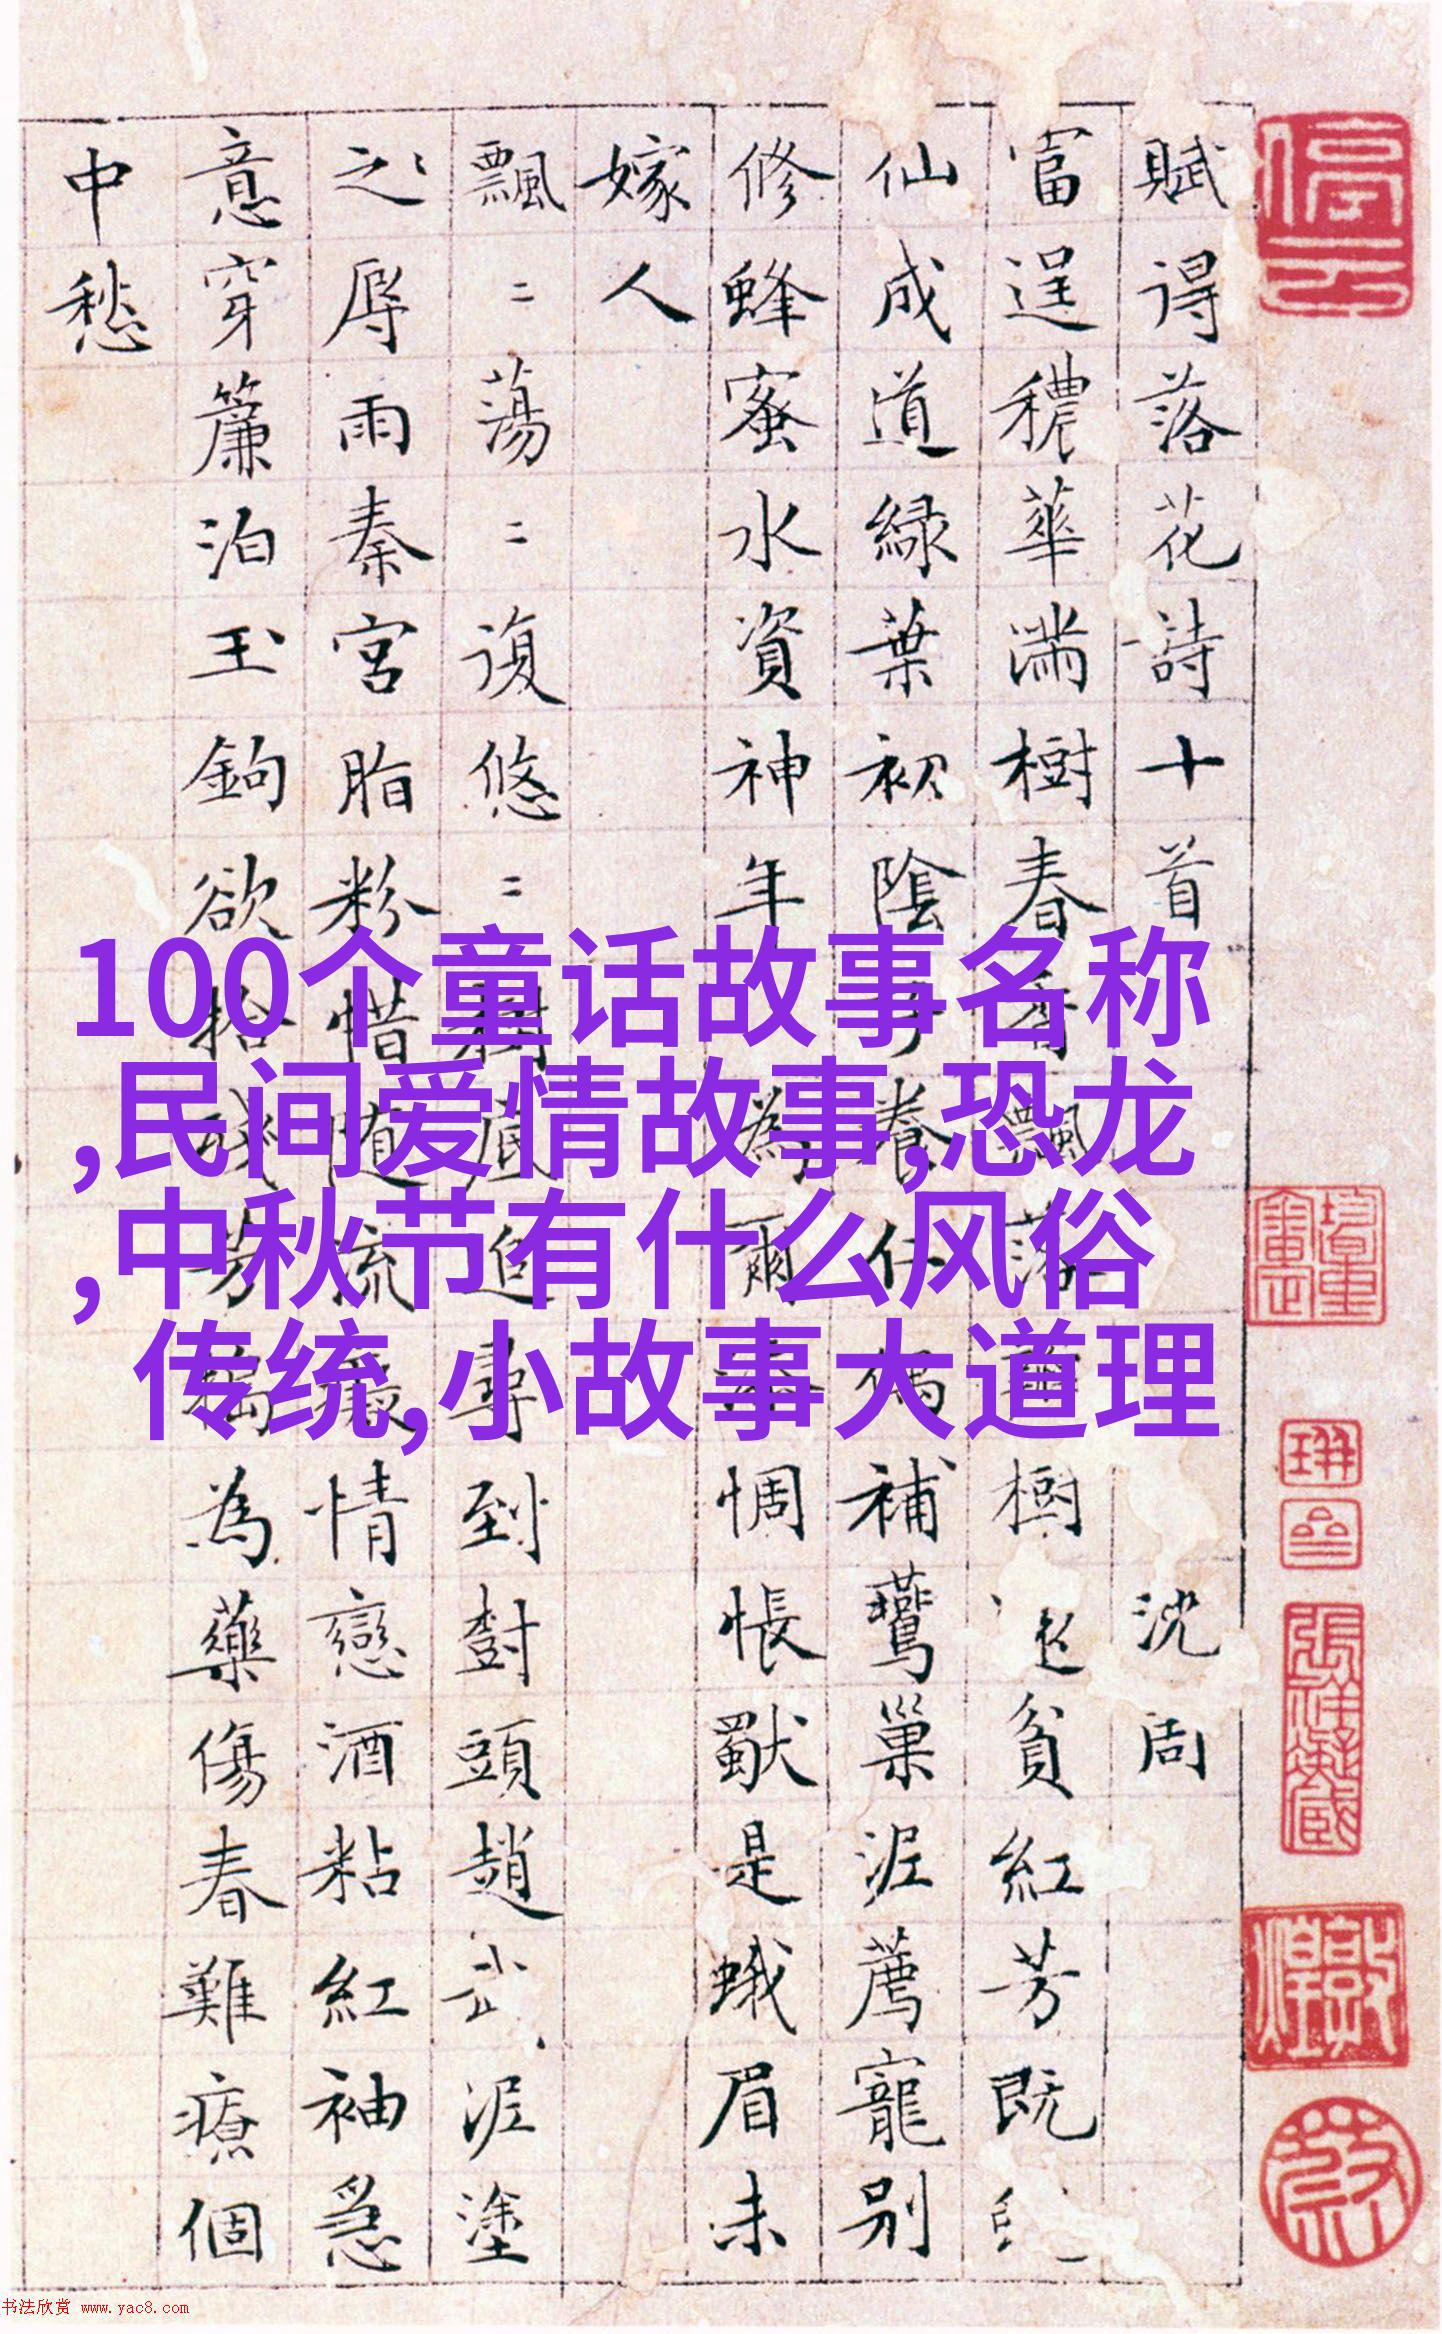 賦得落花詩十首 沈周
富逞穠華滿樹春香飄落樹貧紅芳既
仙成道綠葉初陰子養仁偶補鶯巢泥薦寵別
修蜂蜜水資神年為爾惆悵是蛾眉未
嫁人
飄〻蕩〻復悠〻樹底追尋到樹頭趙武泥塗
之辱雨秦宮脂粉惜隨流情戀酒粘紅袖急
意穿簾泊玉鉤欲拾殘芳搗為藥傷春難療個
中愁
100个童话故事名称
,民间爱情故事,恐龙
,中秋节有什么风俗
传统,小故事大道理
停云
书法欣赏 www.yac8.com